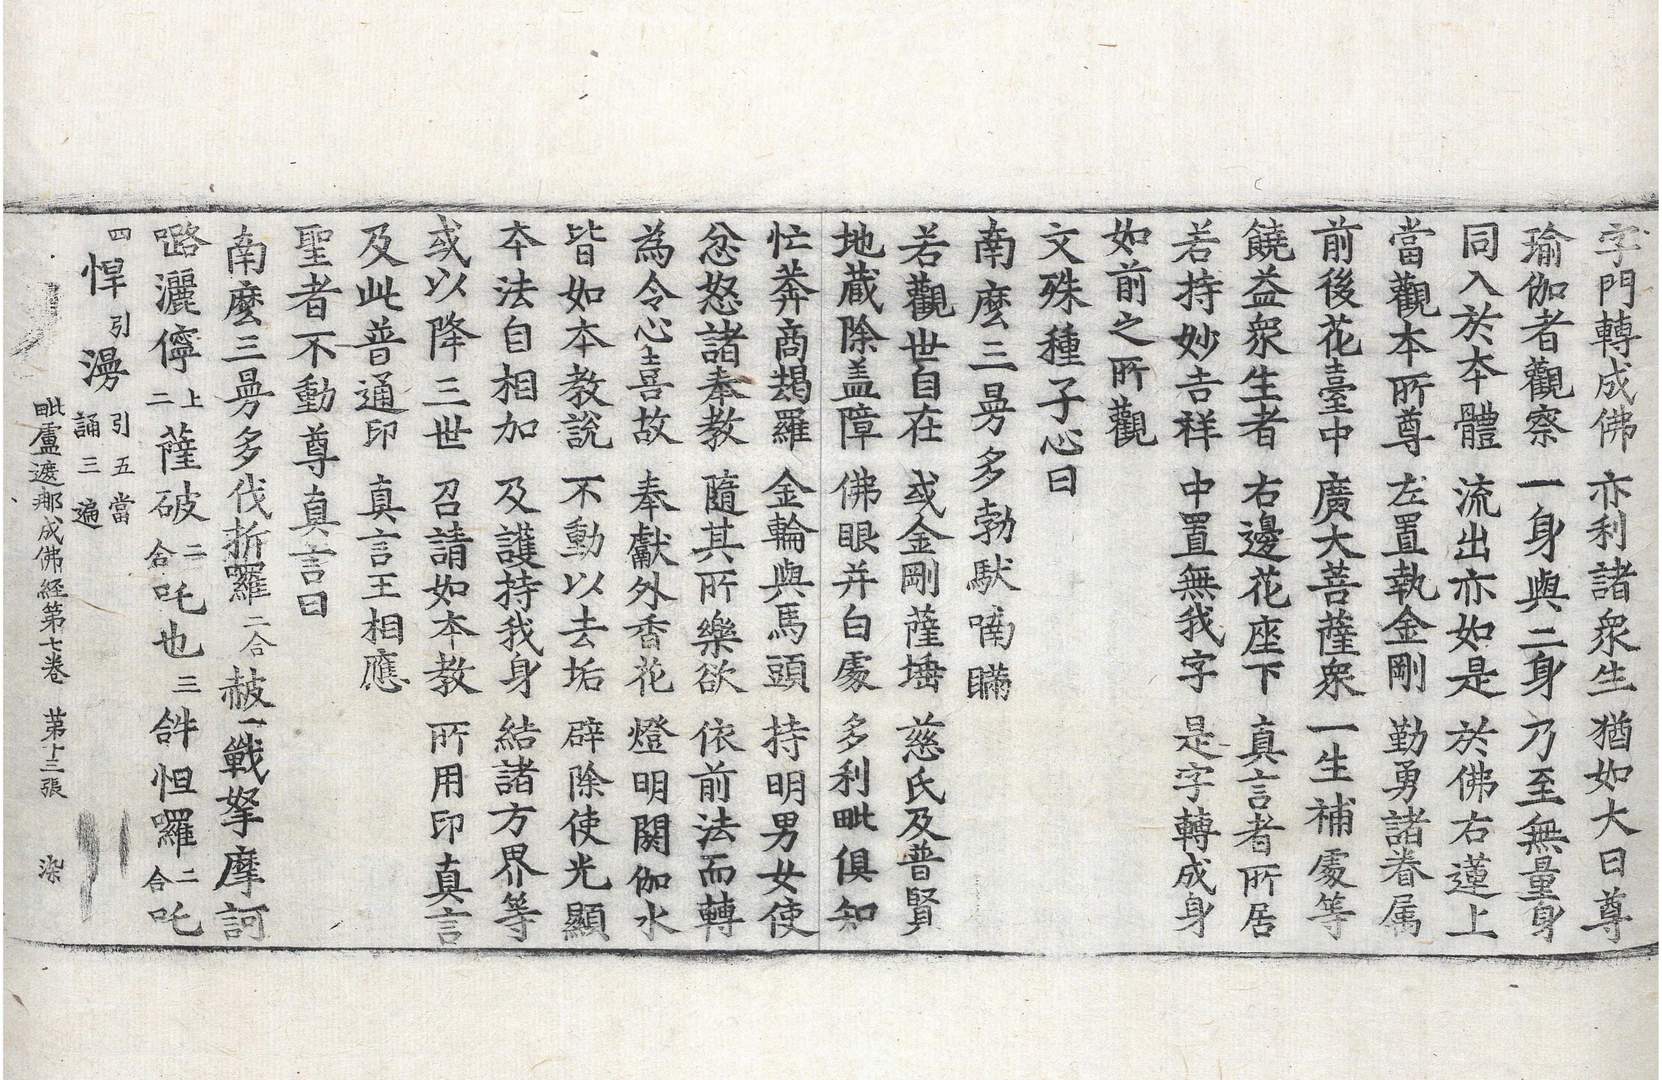 字門轉成佛　亦利諸衆生　猶如大日尊
瑜伽者觀察　一身與二身　乃至無量身
同入於本體　流出亦如是　於佛右蓮上
當觀本所尊　左置執金剛　勤勇諸眷属
前後花臺中　廣大菩薩衆　一生補處等
饒益衆生者　右邊花座下　真言者所居
若持妙吉祥　中置無我字　是字轉成身
如前之所觀
文殊種子心曰
南麽三曼多勃馱喃瞞
若觀世自在　或金剛薩埵　慈氏及普賢
地蔵除盖障　佛眼并白處　多利毗俱知
忙莽商羯羅　金輪與馬頭　持明男女使
忿怒諸奉教　隨其所樂欲　依前法而轉
為令心喜故　奉獻外香花　燈明閼伽水
皆如本教說　不動以去垢　辟除使光顯
本法自相加　及護持我身　結諸方界等
或以降三世　召請如本教　所用印真言
及此普通印　真言王相應
聖者不動尊真言曰
南麽三曼多伐折囉二合赧一戰拏摩訶
嚕灑儜上二薩破二合吒也三𤙖怛囉二合吒
四悍引漫引五當誦三遍
毗盧遮那成佛経第七卷　第十三張　染